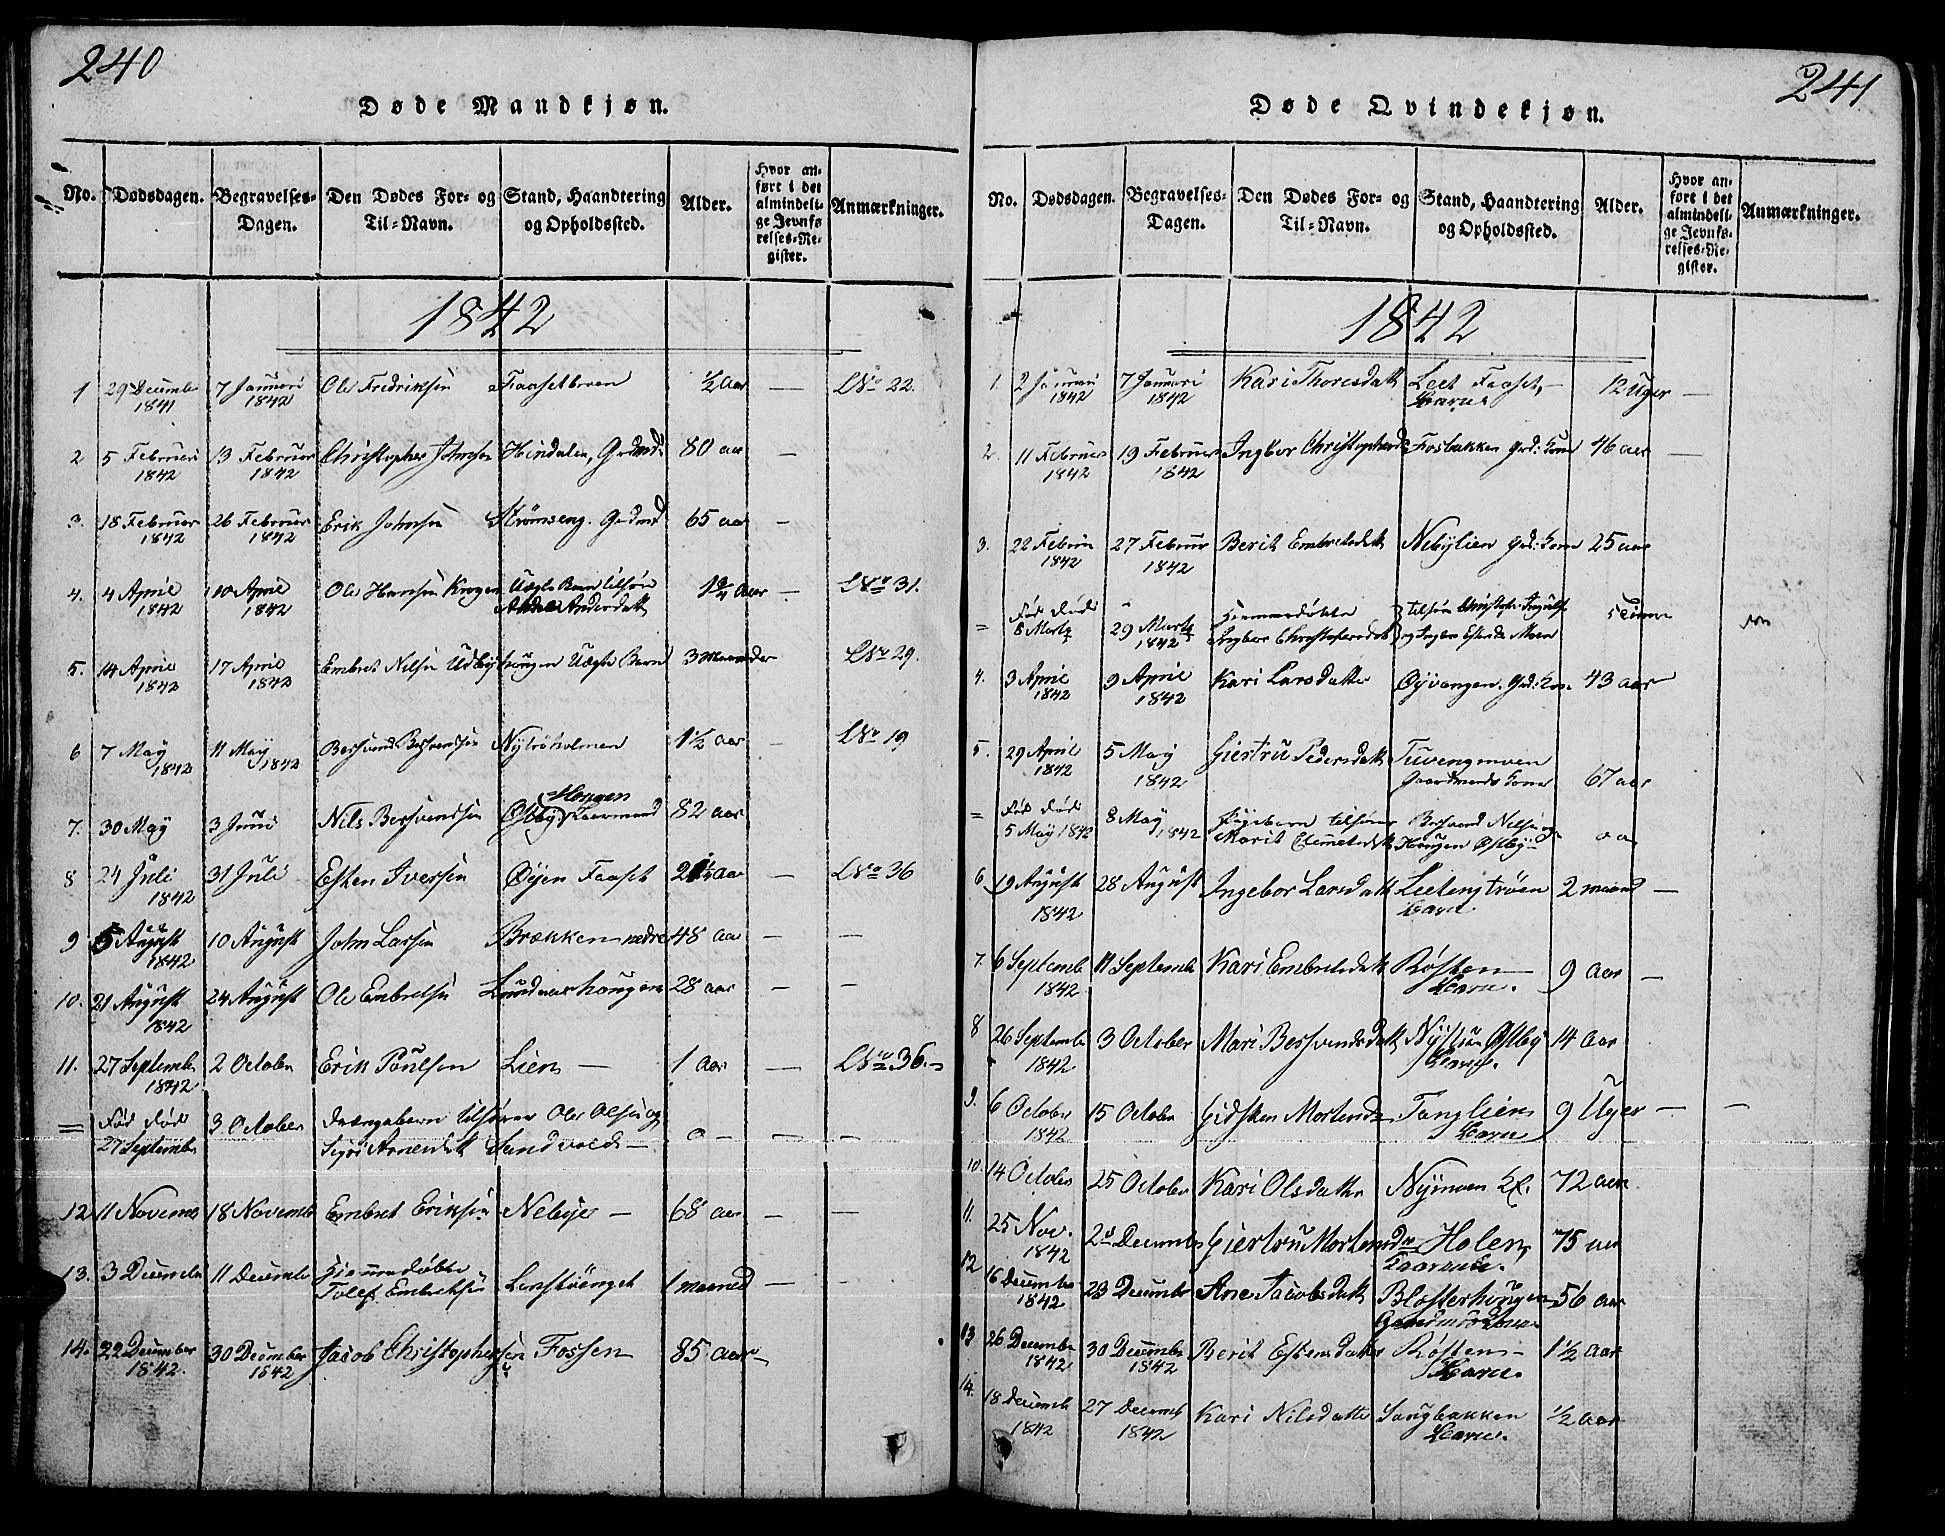 240
Døde Mandkjøn.
No. Dødsdagen. Begravelses-Dagen. Den Dødes For- og Til-Navn. Stand, Haandtering og Opholdssted. Alder. Hvor anført i det almindelige Jevnførelses-Register. Anmærkninger.
1842
1 29 Decembr 1841 7 Januari 1842 Ole Fredriksen ½ Aar — No 22.
2 5 Februari 1842 13 Februar 1842 Christopher Johnsen Hindalen, Gdmd: 80 aar —
3. 18 Februar 1842 26 Februar 1842 Erik Johnsen Strømseng. Gdmd 65 aar —
4. 4 Aprie 1842 10 Aprie 1842 Ole Hansen Krogen Uægte Barn tilføie Andersdatt Aar — No 31.
5. 14 Aprie 1842 17 Aprie 1842 Embret Nilsen Udbyhaugen Uægte Barn 3 Maaneder No 29.
6 7 May 1842 11 May 1842 Bersvend Bersvendsen Nytrøholmen 1½ Aar — No 19
7. 30 May 3 Juni Nils Bersvendsen Østby Haugen 82 aar
8 24 Juli 1842 31 Juli Esten Iversen Øyen Faaset Aar — No 36
9 5 August 1842 10 August John Larsen Brækken nedre 48 aar — —
10. 21 August 1842 24 August Ole Embretsen 28 aar — —
11. 27 Septembr 1842 2 October Erik Poulsen Lien — 1 Aar — No 36.
= Død Fød 27 Septembr 3 October Drængebarn tilhører Ole Olsen og Sigri Arnesdatt Sandvold — o — — —
12 11 Novembr 18 Novembr Embret Eriksen Nebye — 68 aar — —
13. 3 Decembr 11 Decembr Hiemmedøbte Tolef Embretsen 1 maaned — —
14. 22 December 1842. 30 December 1842 Jacob Christophersen Fossen 85 aar
241
Døde Qvindekjøn.
No. Dødsdagen. Begravelses-Dagen. Den Dødes For- og Til-Navn. Stand, Haandtering og Opholdssted. Alder. Hvor anført i det almindelige Jevnførelses-Register. Anmærkninger.
1842
1. 2 Januari 1842 7 Januari 1842 Kari Thoresdatt Faaset 12 Uger —
2. 11 Februar 1842 19 Februar 1842 Ingbor Christophersd Fosbakken Grd: Kone 46 aar —
3. 22 Februar 1842 27 Februar 1842 Berit Embretsdatt Nebylien Grd: Kone 25 aar
= Død Fød 8 Marty 29 Marty 1842 Hiemmedøbte Ingbor Christofersdat
4. 3 Aprie 1842 9 Aprie 1842 Kari Larsdatter Øyvangen. Grd: Kone 43 aar
5. 29 Aprie 1842 5 May 1842 Giertru Pedersdatt Tuvengmoen Gaardmands Kone 67 aar
= Død Fød 5 May 1842 8 May 1842 Pigebarn tilhører Bersvend Nilsen og Marit Clemetsdatt Haugen Østby
6 19 August 1842 28 August Ingebor Larsdatt 2 maaned —
7. 6 Septemb 1842 11 Septembr Kari Embretsdatt Røsten — 9 Aar —
8 26 Septembr 1842 3 October Mari Bersvendsdatt Østby 14 Aar
9. 6 October 1842 15 October Gidsken Mortensd Tanglien 9 Uger — —
10. 14 October 25 October Kari Olsdatter Nymoen 72 aar
11. 25 Nov. 1842 2 Decembr Giertru Mortensd Holen 75 aar
12 16 Decembr 1842 23 Decembr Ane Jacobsdatt 56 aar
13 26 Decembr 1842 30 Decembr 1842 Berit Estensdatter Røsten — 1½ Aar
14. 18 Decembr 1842 27 Decemb 1842 Kari Nilsdatter Sangbakken ½ Aar